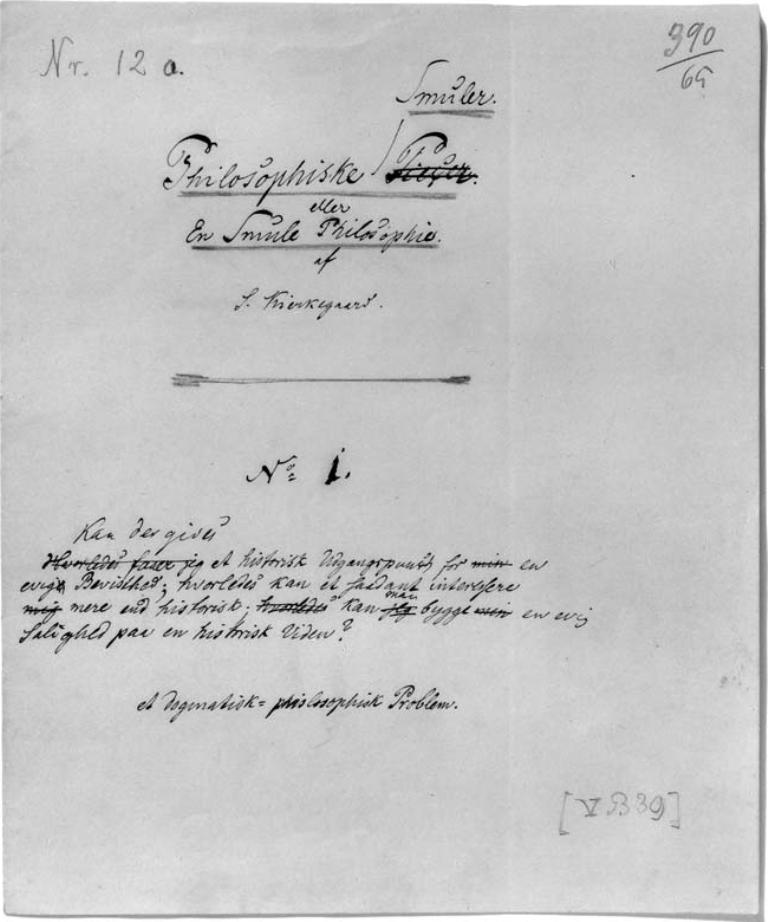 Nr. 12 a.
390
65
Smuler.
Philosophiske Piecer.
eller
En Smule Philosophie.
af
S. Kierkegaard.
No 1.
Kan der gives
Hvorledes faaer jeg et historisk Udgangspunkt for min en
evig Bevisthed; hvorledes kan et saadant interessere
mig mere end historisk; hvorledes kan jeg man bygge min en evig
Salighed paa en historisk Viden?
et dogmatisk=philosophisk Problem.
[V B 39]